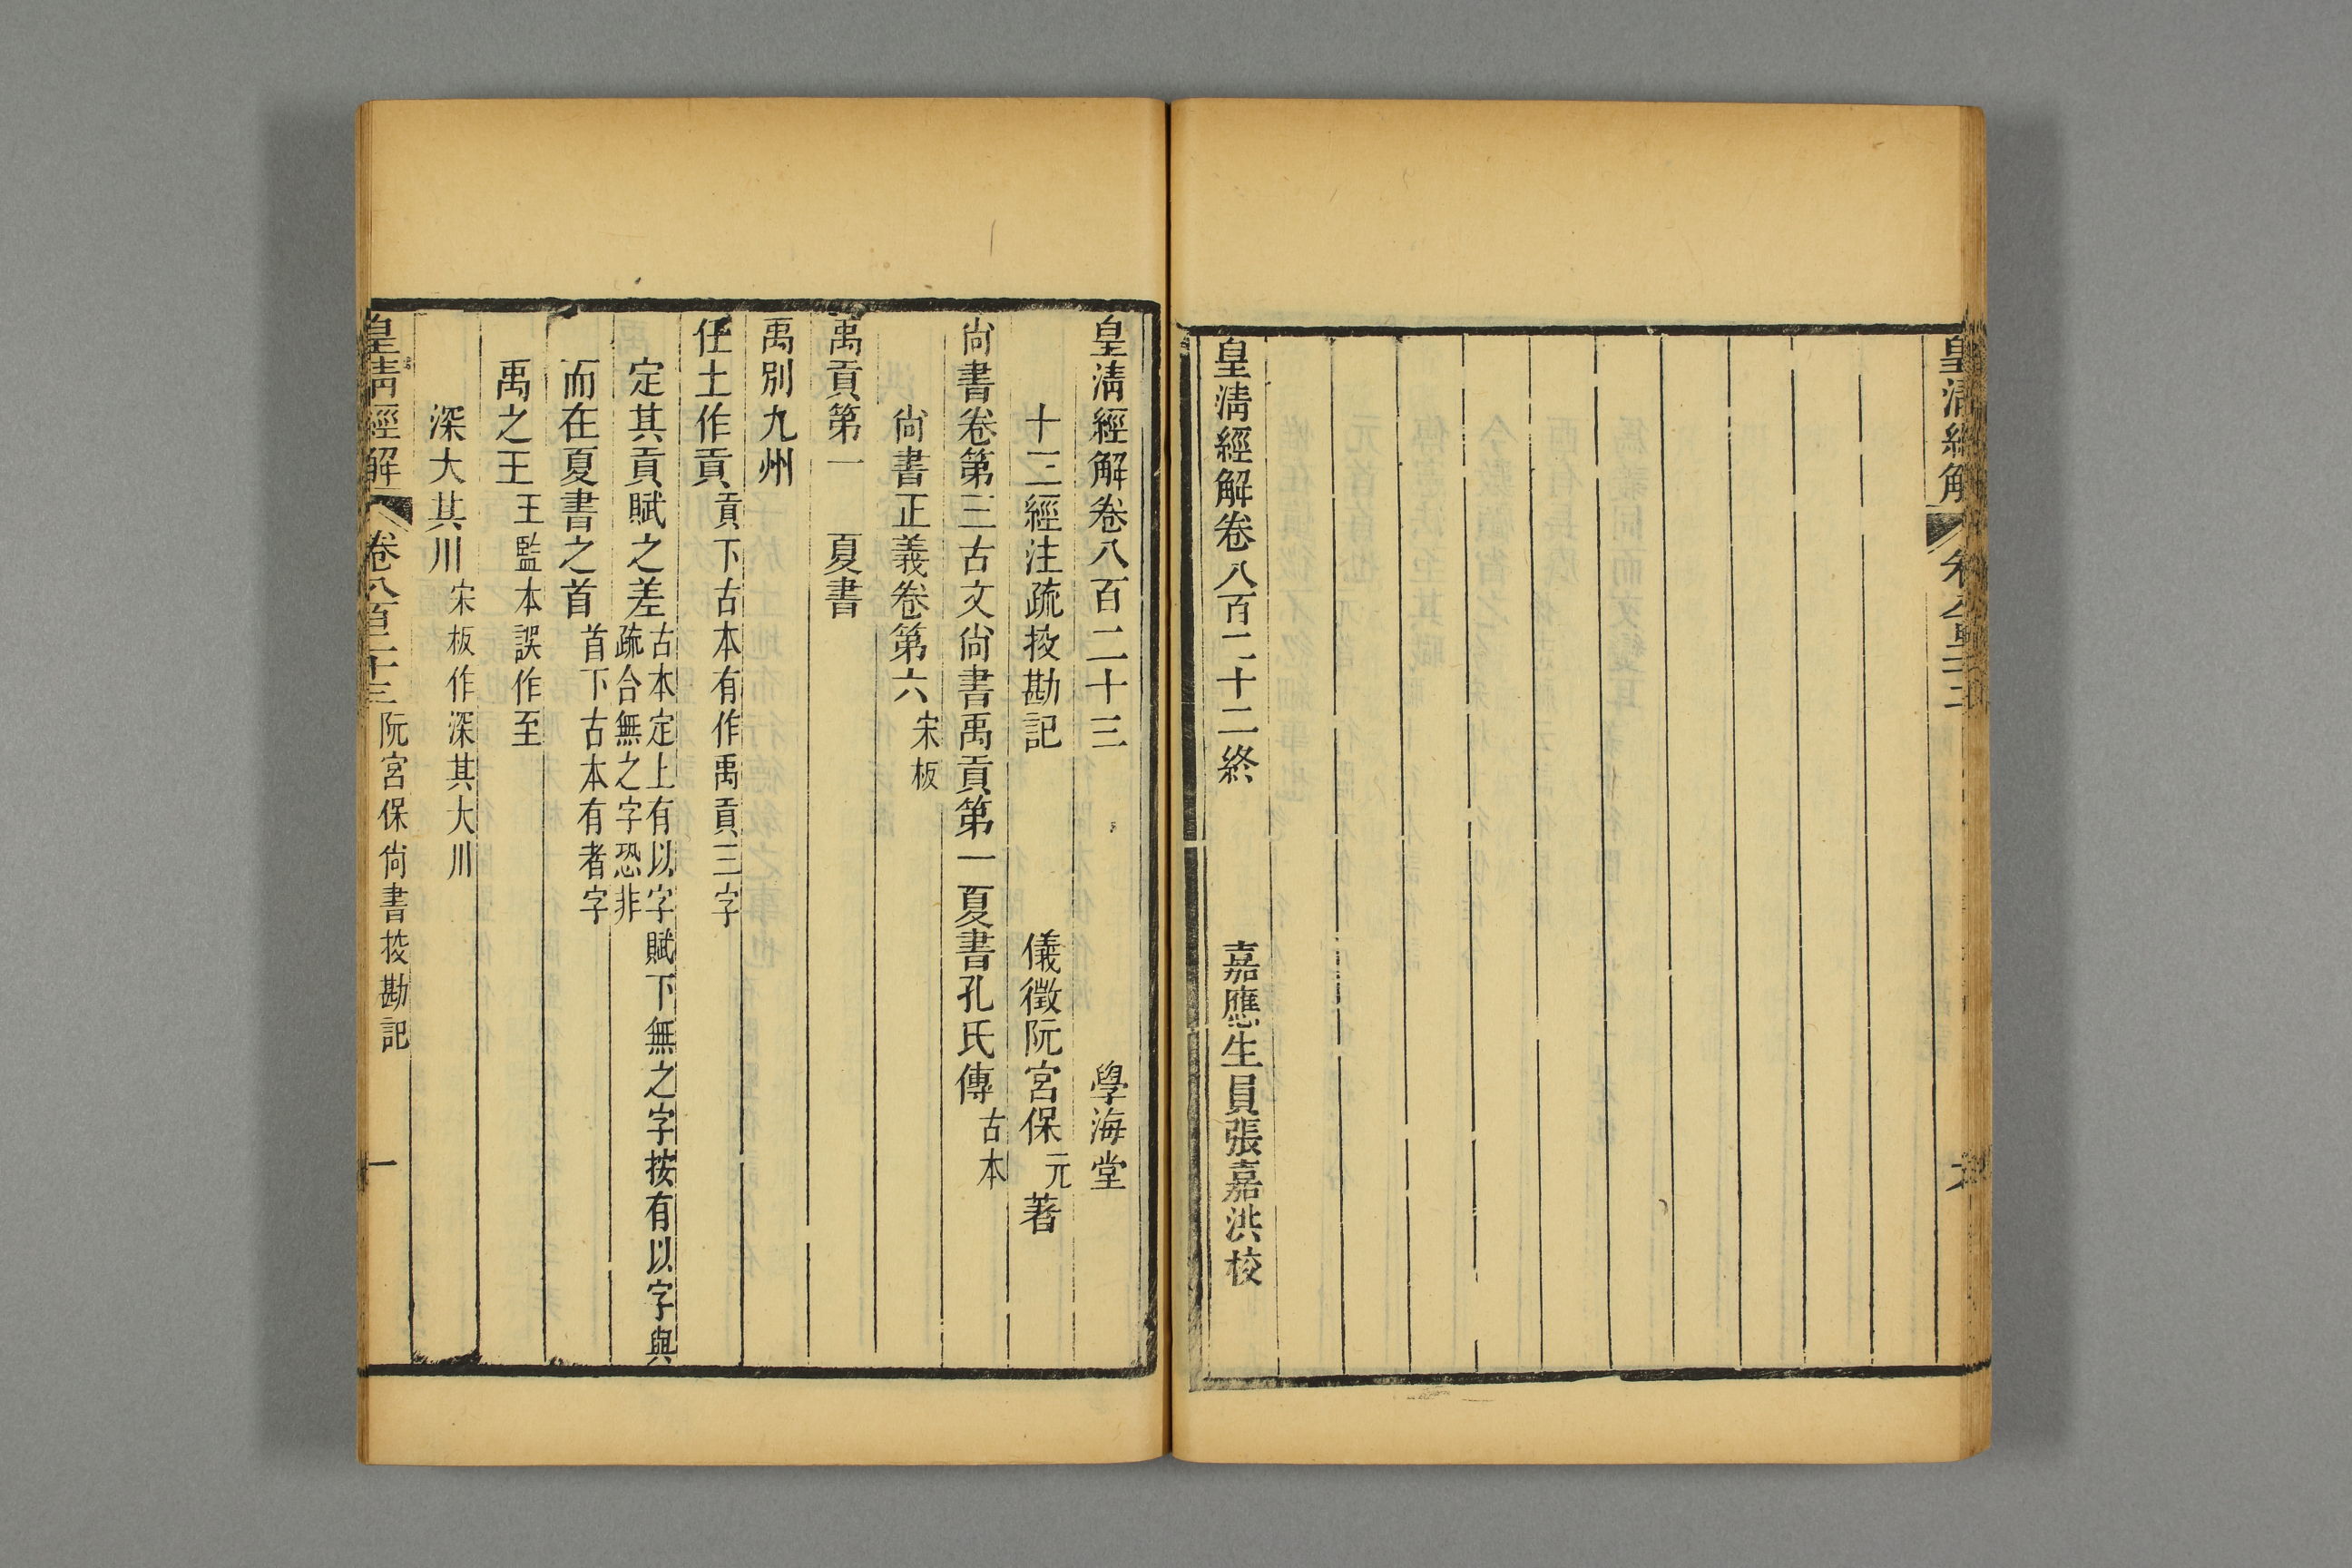 皇清經解
皇清經解卷八百二十二終 嘉應生員張嘉洪校
皇清經解卷八百二十三 學海堂
十三經注疏挍勘記 儀徵阮宮保元著
尙書卷第三古文尙書禹貢第一夏書孔氏傳古本
尙書正義卷第六宋板
禹貢第一 夏書
禹別九州
任土作貢貢下古本有作禹貢三字
定其貢賦之差古本定上有以字賦下無之字按有以字與疏合無之字恐非
而在夏書之首首下古本有者字
禹之王王監本誤作至
深大其川宋板作深其大川
皇清經解 卷八百二十三 阮宮保尙書挍勘記 一